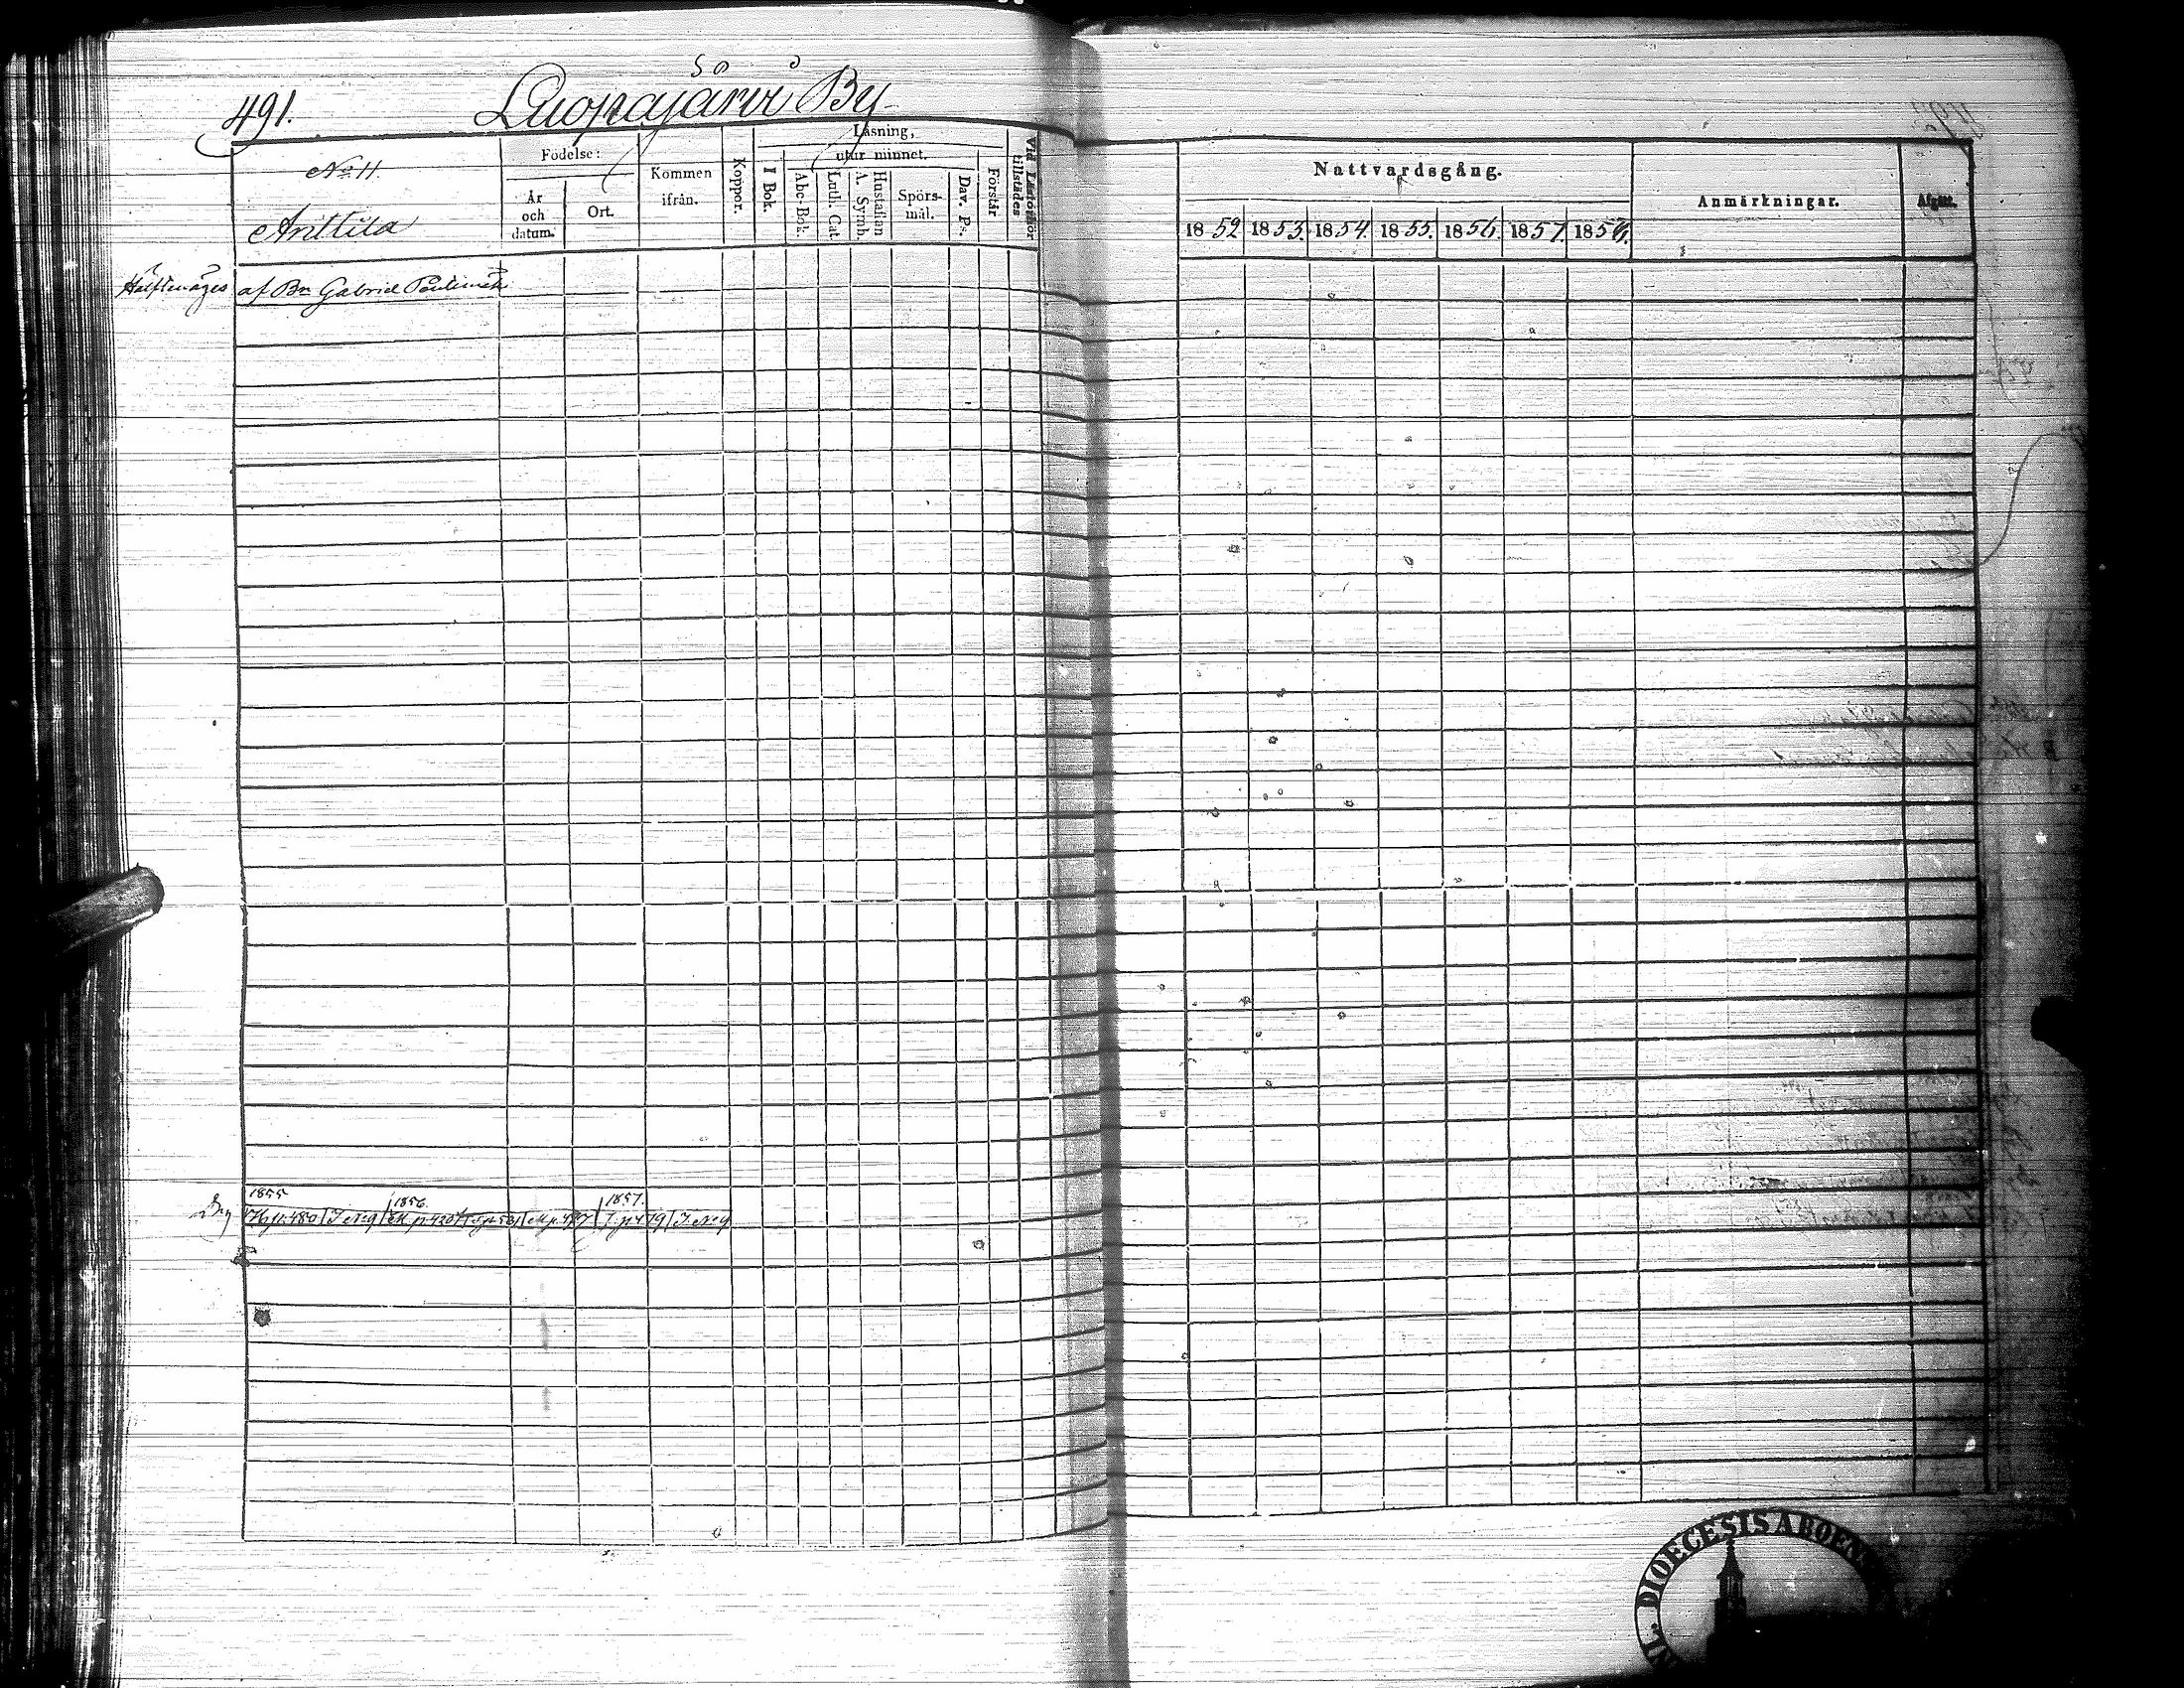 491.
Luopajärvi By
No 11.
Anttila
Födelse:
År och datum.
Ort.
Kommen ifrån.
Koppor.
Läsning,
utur minnet.
I Bok.
Abc-Bok.
Luth. Cat.
A. Symb.
Hustaflan
Spörs-mål.
Dav. Ps.
Förstår
Vid Läseförhör tillstädes
Nattvardsgång.
1852 1853. 1854. 1855. 1856. 1857. 1858.
Anmärkningar.
Afgått.
Hälften äges af Bn Gabriel
1855 1856. 1857.
Drg
DIOECESIS ABOENS